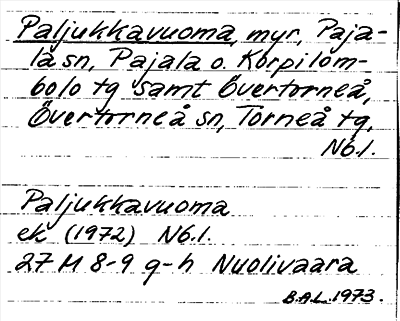 Paljukkavuoma, myr, Paja-
la sn, Pajala o. Korpilom-
bolo tg samt Övertorneå,
Övertorneå sn, Torneå tg.
Nb.l.
Paljukkavuoma
ek (1972) Nb.l.
27 M 8-9 g-h Nuolivaara
B.A.L. 1973.